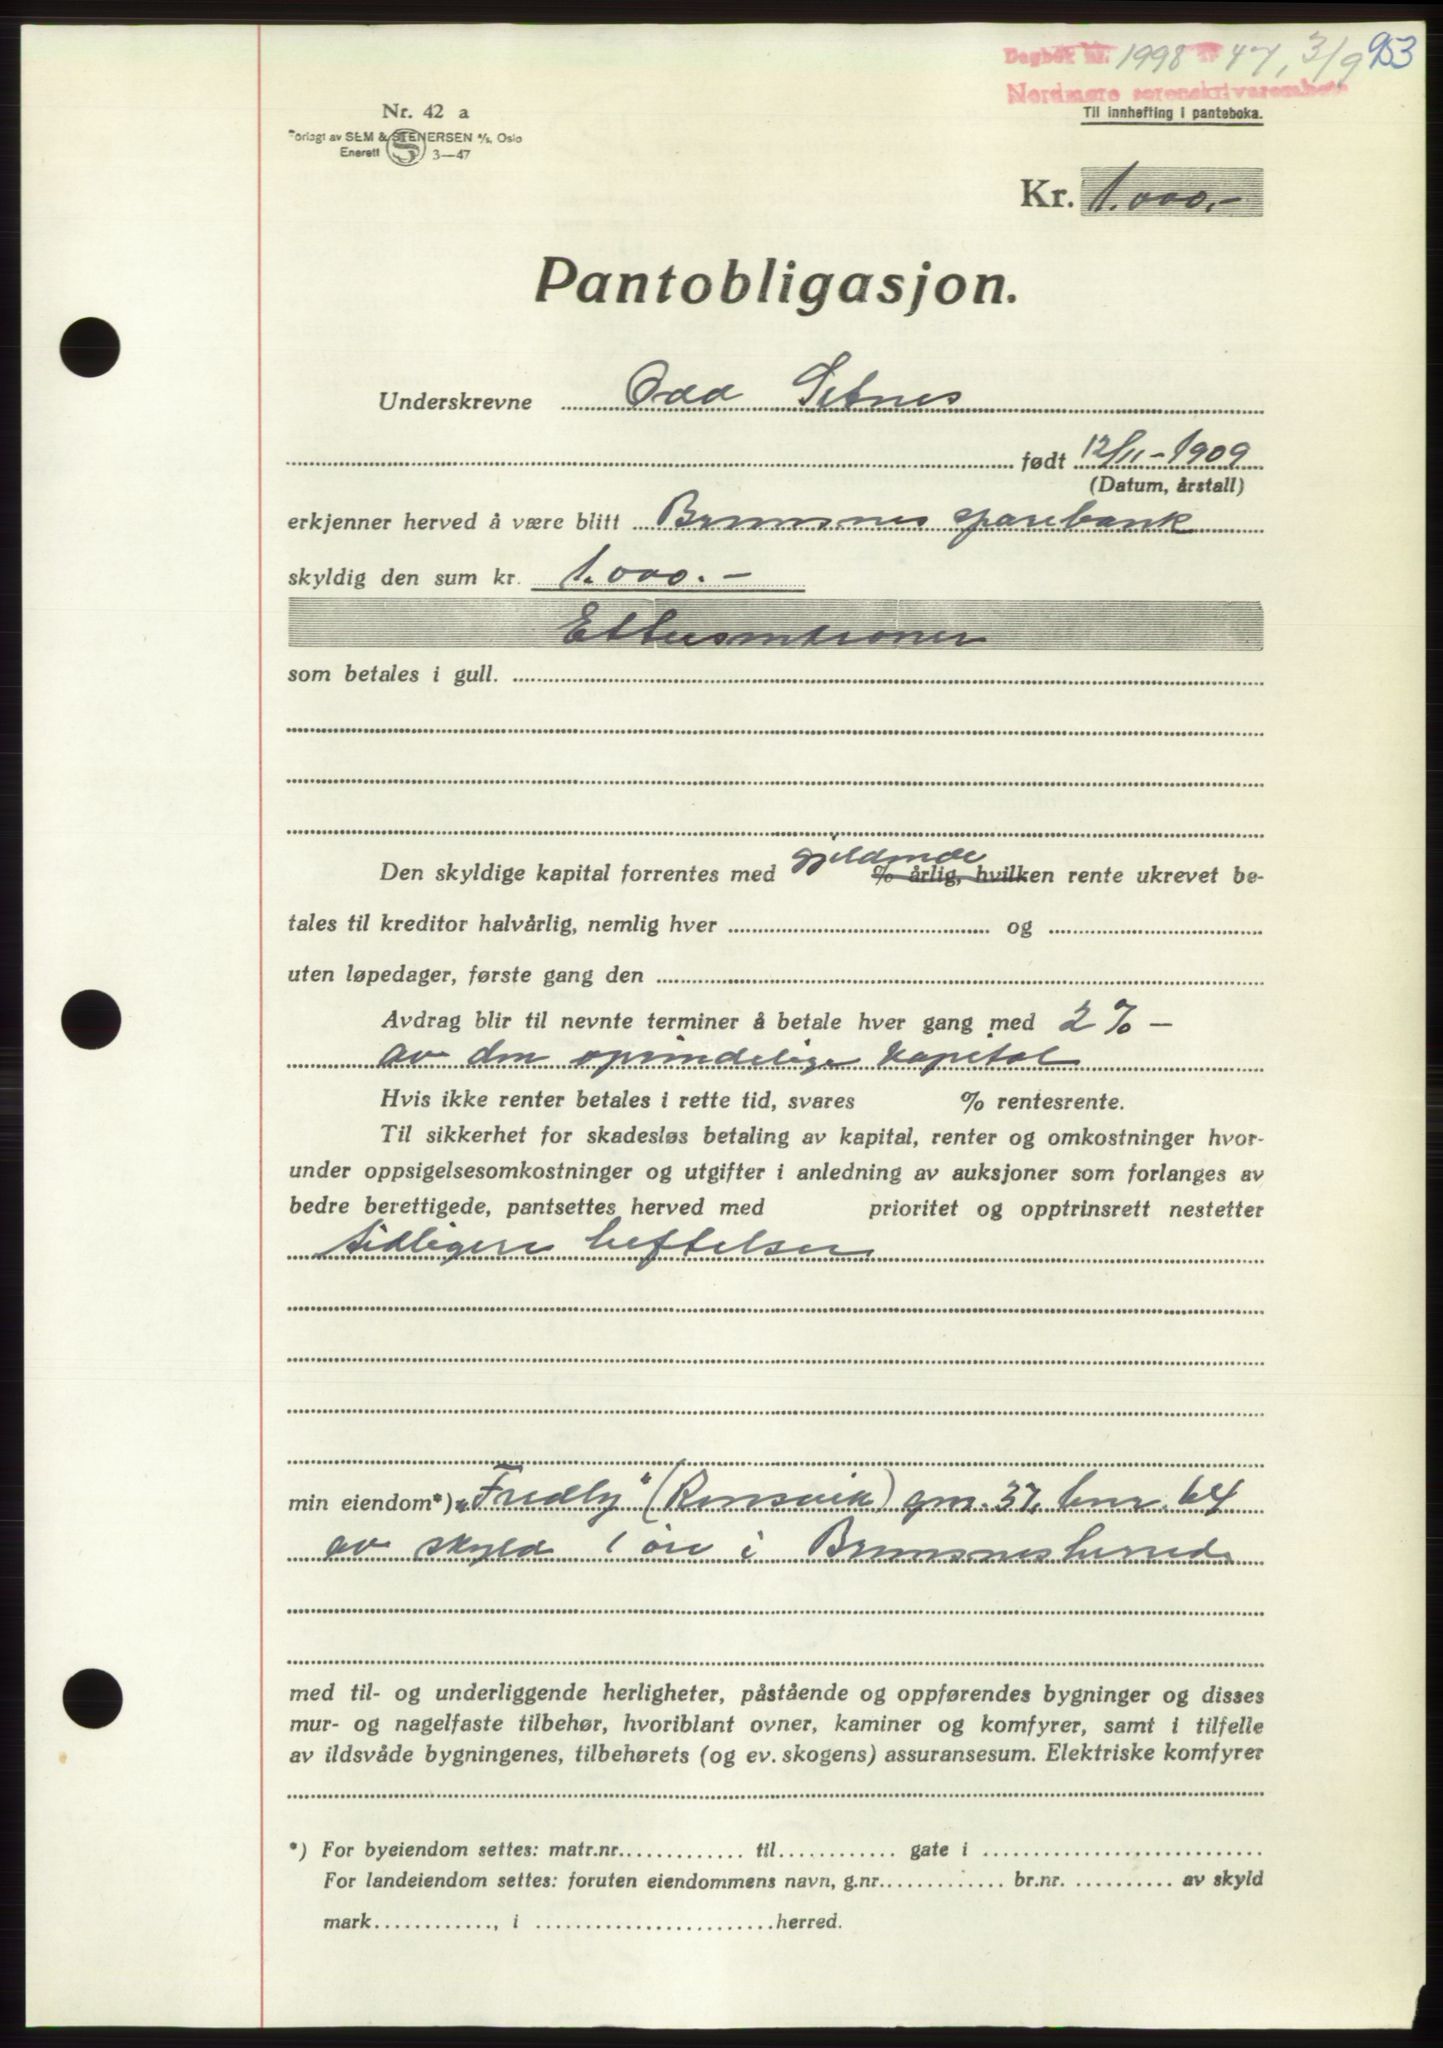 Dagbok nr. 1998 47, 3/9 953
Nordmøre sorenskriverembete
Til innhefting i panteboka.
Nr. 42 a
Forlagt av SEM & STENERSEN A/S, Oslo
Enerett S 3—47
Kr. 1.000.-
Pantobligasjon.
Underskrevne Odd Setnes
født 12/11-1909
(Datum, årstall)
erkjenner herved å være blitt Bremsnes sparebank
skyldig den sum kr. 1.000.-
Ettusenkroner
som betales i gull.
gjeldende
Den skyldige kapital forrentes med % årlig, hvilken rente ukrevet be-
tales til kreditor halvårlig, nemlig hver og
uten løpedager, første gang den
Avdrag blir til nevnte terminer å betale hver gang med 2% -
av den oprindelige kapital
Hvis ikke renter betales i rette tid, svares % rentesrente.
Til sikkerhet for skadesløs betaling av kapital, renter og omkostninger hvor-
under oppsigelsesomkostninger og utgifter i anledning av auksjoner som forlanges av
bedre berettigede, pantsettes herved med prioritet og opptrinsrett nestetter
tidligere heftelser
min eiendom*) "Fredly" (Ramsvik) gnr. 37, bnr. 64
av skyld 1 øre i Bremsnes herred
med til- og underliggende herligheter, påstående og oppførendes bygninger og disses
mur- og nagelfaste tilbehør, hvoriblant ovner, kaminer og komfyrer, samt i tilfelle
av ildsvåde bygningenes, tilbehørets (og ev. skogens) assuransesum. Elektriske komfyrer
*) For byeiendom settes: matr.nr. til gate i
For landeiendom settes: foruten eiendommens navn, g.nr. br.nr. av skyld
mark , i herred.